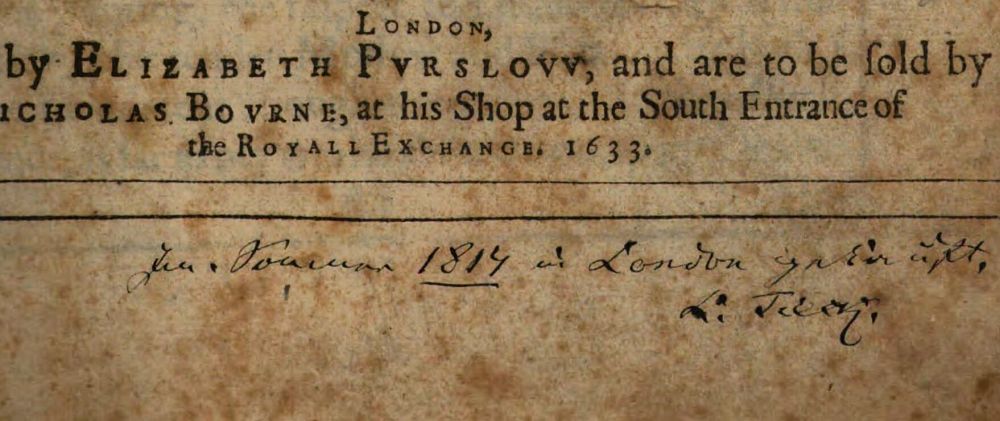 LONDON,
by ELIZABETH PVRSLOVV, and are to be ſold by
ICHOLAS BOVRNE, at his Shop at the South Entrance of
the ROYALL EXCHANGE. 1633.
Im Sommer 1817 in London gekauft.
L. Tieck.